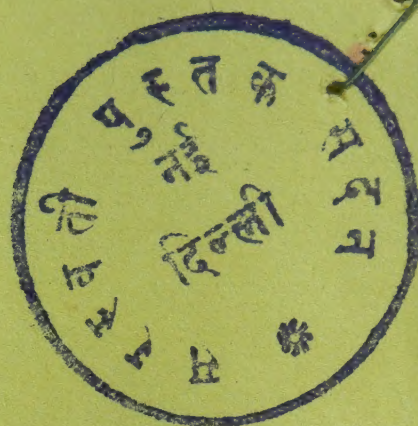 सरस्वती पुस्तक सदन
नई
दिल्ली